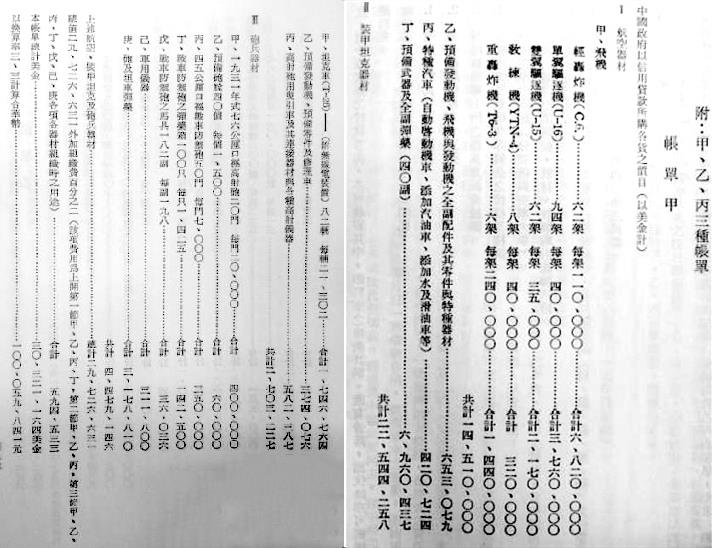 附：甲、乙、丙三種帳單
帳單甲
中國政府以信用貸款所購各貨之價目（以美金計）
I 航空器材
甲、飛機
輕轟炸機（C-Б）……六二架 每架一一〇、〇〇〇……合計六、八二〇、〇〇〇
單翼驅逐機（U-16）……九四架 每架四〇、〇〇〇……合計三、七六〇、〇〇〇
雙翼驅逐機（U-15）……六二架 每架三五、〇〇〇……合計二、一七〇、〇〇〇
教練機（YTN-4）……八架 每架四〇、〇〇〇……合計三二〇、〇〇〇
重轟炸機（Тб-3）……六架 每架二四〇、〇〇〇……合計一、四四〇、〇〇〇
共計一四、五一〇、〇〇〇
乙、預備發動機、飛機與發動機之全副配件及其零件與特種器材……六五三、〇七九
丙、特種汽車（自動啓動機車、添加汽油車、添加水及滑油車等）……四二〇、七二四
丁、預備武器及全副彈藥（四〇副）……六、九六〇、四三七
共計二二、五四四、二五八
II 裝甲坦克器材
甲、坦克車（T-26）——（附無線電裝置）八二輛 每輛二一、三〇二……合計一、七四六、七六四
乙、預備發動機、預備零件及修理車……三七四、〇七六
丙、高射砲用曳引車及其連接器材與各種高射儀器……五八二、二八七
共計二、七〇三、二二七
III 砲兵器材
甲、一九三一年式七六公厘口徑高射砲二〇門 每門二〇、〇〇〇……合計四〇〇、〇〇〇
乙、預備砲四〇個 每個一、五〇〇……合計六〇、〇〇〇
丙、四五公厘口徑戰車防禦砲五〇門 每門、〇〇〇……合計二五〇、〇〇〇
丁、戰車防禦砲之彈藥箱一〇〇只 每只一、四二五……合計一四二、五〇〇
戊、戰車防禦砲之馬具一八二副 每副一九八……合計三六、〇三六
己、軍用儀器……合計三二一、八〇〇
庚、砲及坦車彈藥……合計三、一七八、八一〇
共計四、四七九、一四六
上述航空、裝甲坦克及砲兵器材……總計二九、七二六、六三一
總值二九、七二六、六三一外加組織費百分之二（該項費用爲上開第一節甲、乙、丙、丁、第二節甲、乙、丙、第三節甲、乙、
丙、丁、戊、己、庚各項各器材組織時之用途）……合計五九四、五三三
本帳單總計美金……三〇、三二一、一六四美金
以換算率三、三計算合華幣……一〇〇、〇五九、八四一元